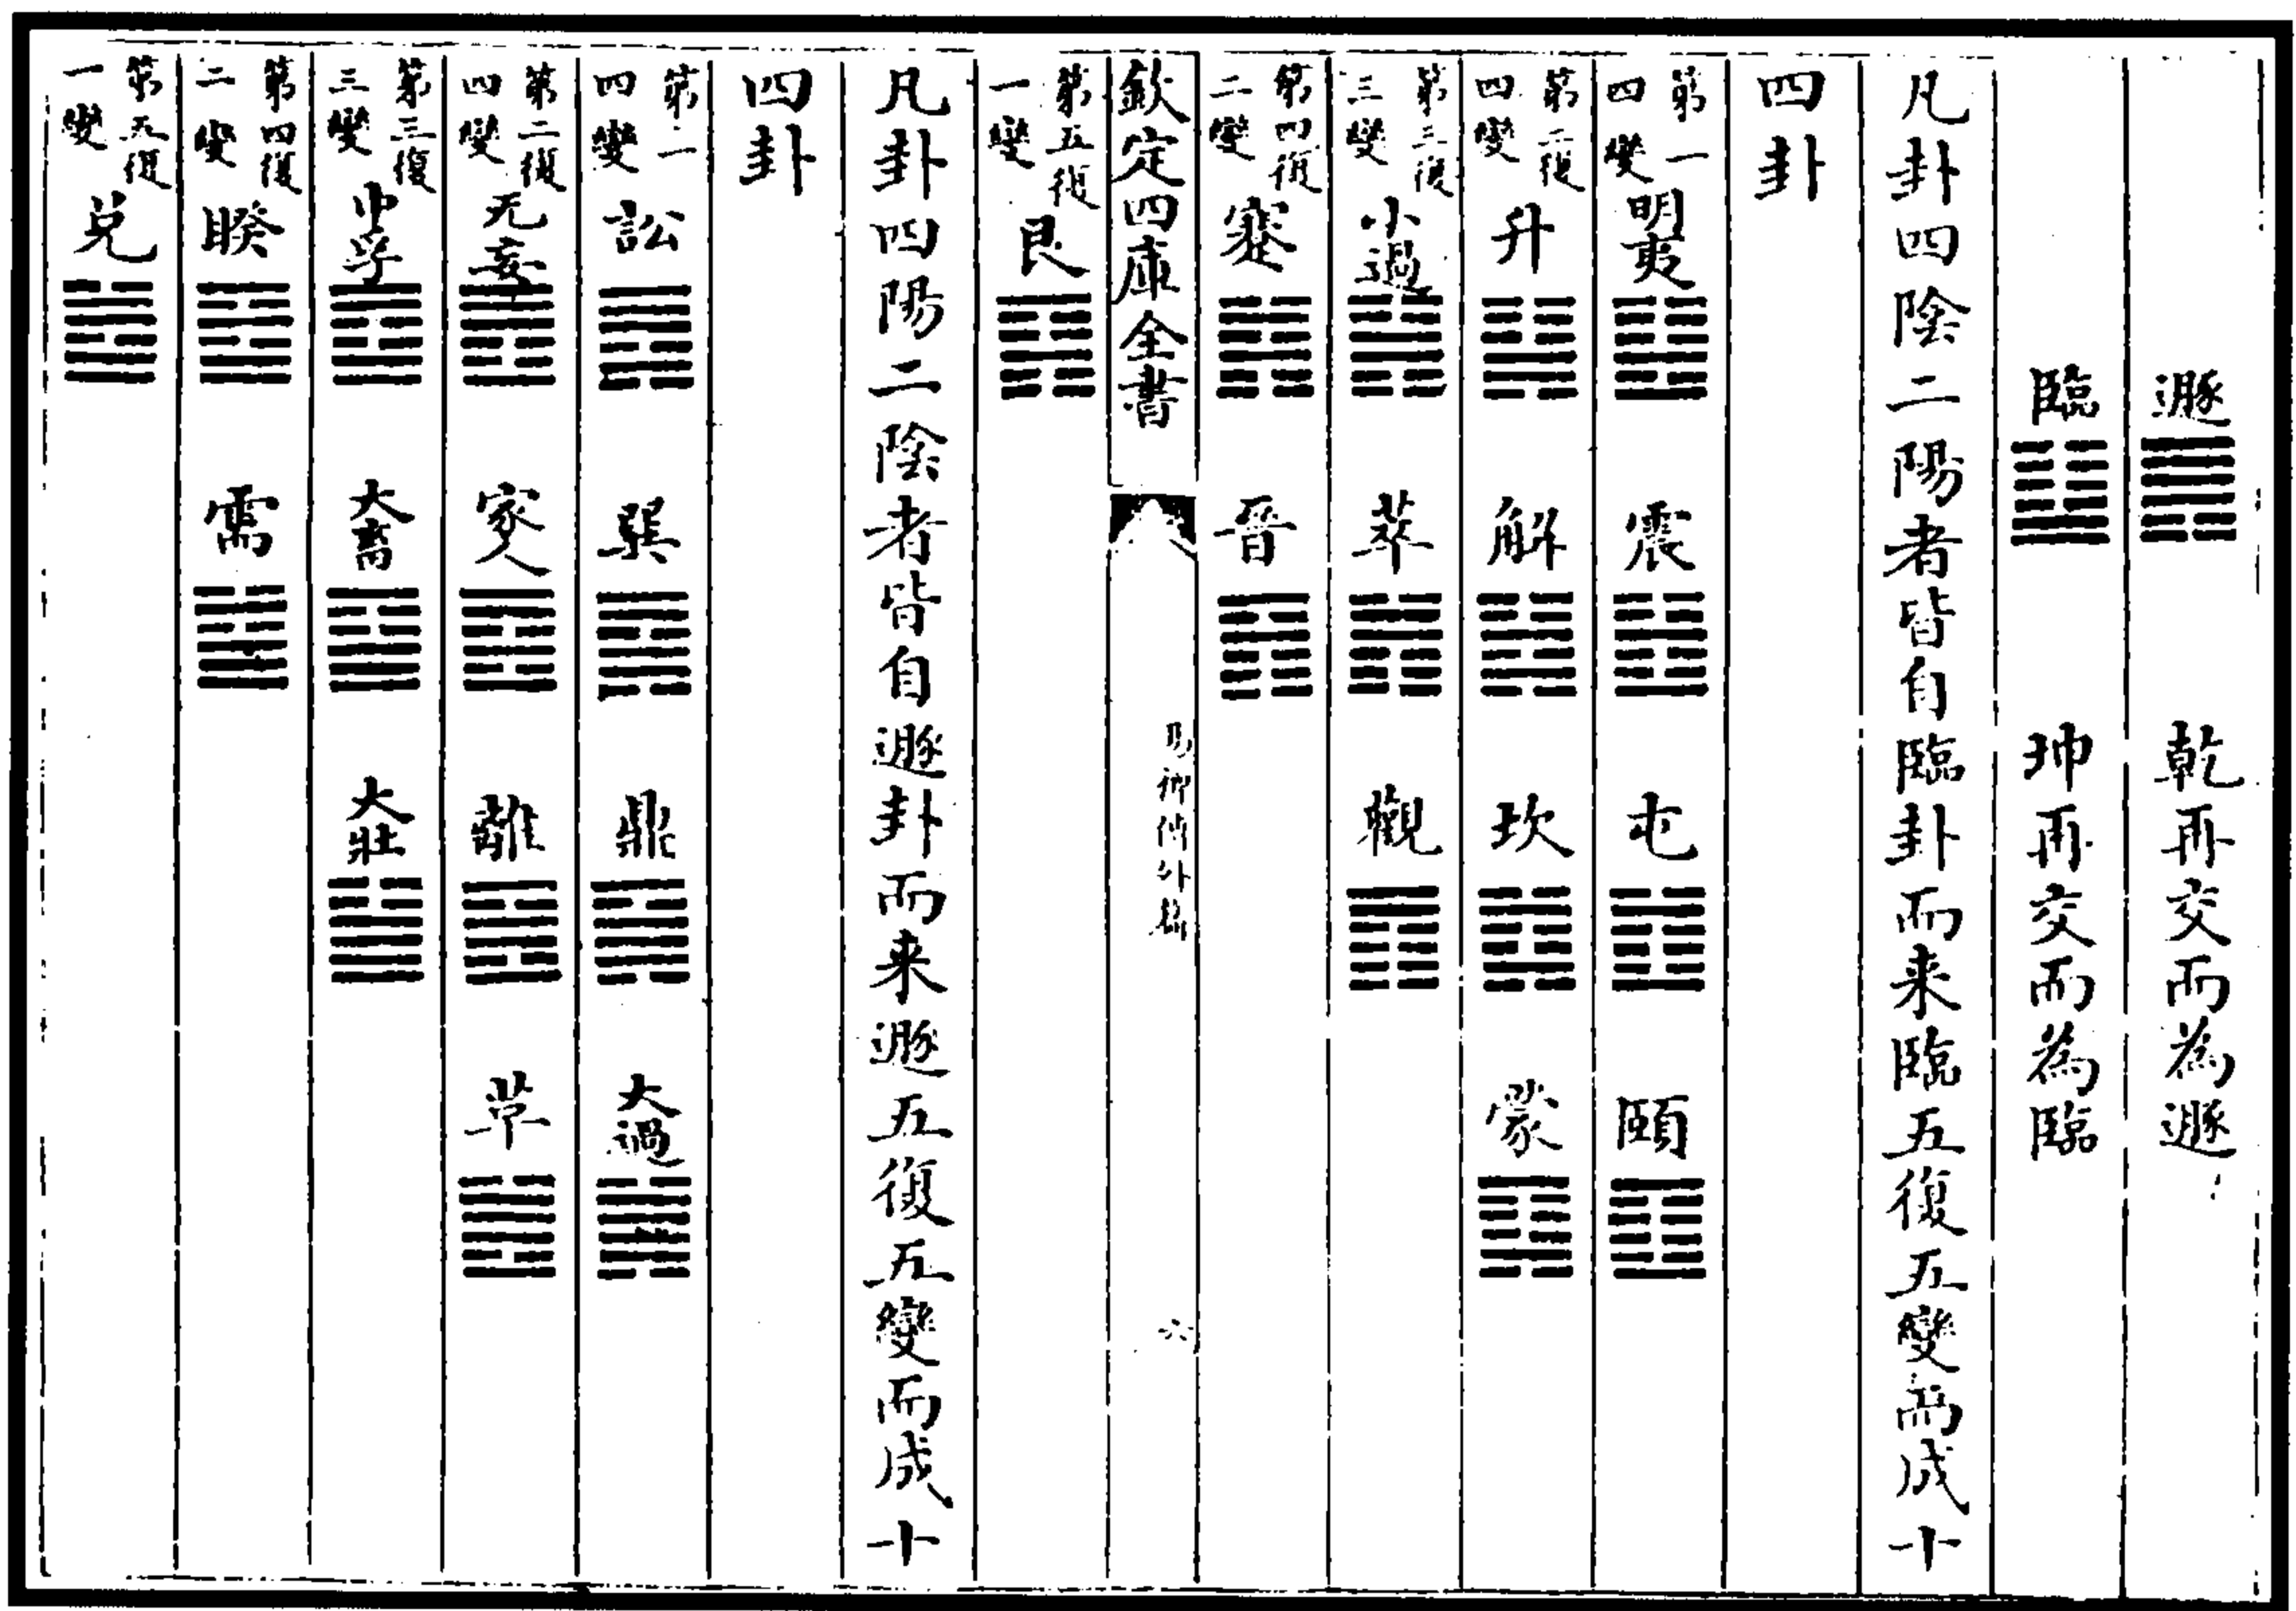 遯䷠乾再交而為遯
臨䷒坤再交而為臨
凡卦四陰二陽者皆自臨卦而来臨五復五變而成十
四卦
第一四變 明夷䷣ 震䷲ 屯䷂ 頤䷚
第二復四變 升䷭ 解䷧ 坎䷜ 蒙䷃
第三復三變 小過䷽ 萃䷬ 觀䷓
第四復二變 蹇䷦ 晉䷢
欽定四庫全書 易卿傳外篇 六
第五復一變 艮䷳
凡卦四陽二陰者皆自遯卦而来遯五復五變而成十
四卦
第一四變 訟䷅ 巽䷸ 鼎䷱ 大過䷛
第二復四變 无妄䷘ 家人䷤ 離䷝ 革䷰
第三復三變 中孚䷼ 大畜䷙ 大壯䷡
第四復二變 睽䷥ 需䷄
第五復一變 兌䷹